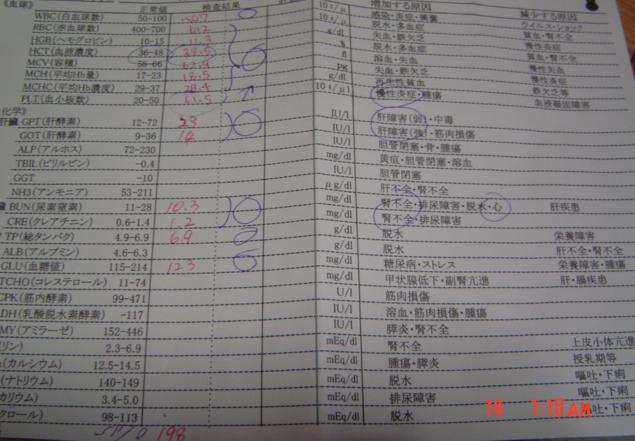 正常値 検査結果 増加する原因 減少する原因
WBC(白血球数) 50-100 感染・炎症・興奮 ウイルス・ショック
RBC(赤血球数) 400-700 脱水・多血症 貧血・腎不全
HGB(ヘモグロビン) 10-15 g/dl 失血・鉄欠乏
HCT(血液濃度) 36-48 38.5 % 脱水・多血症 慢性炎症
MCV(容積) 58-66 fl 溶血・失血
MCH(平均Hb量) 17-23 18.5 pg 失血・鉄欠乏 慢性失血
MCHC(平均Hb濃度) 29-37 g/dl 再生性貧血 慢性炎症
PLT(血小板数) 20-50 慢性炎症・腫瘍 血液凝固障害
化学)
GPT(肝酵素) 12-72 53 IU/l 肝障害(弱)・中毒
GOT(肝酵素) 9-36 14 IU/l 肝障害(強)・筋肉損傷
ALP(アルホス) 72-230 IU/l 胆管閉塞・骨・腫瘍
TBIL(ビリルビン) -0.4 mg/dl 黄疸・胆管閉塞・溶血
GGT -10 IU/l 胆管閉塞
NH3(アンモニア) 53-211 μg/dl 肝不全・腎不全
BUN(尿素窒素) 11-28 10.3 mg/dl 腎不全・排尿障害・脱水・心 肝疾患
CRE(クレアチニン) 0.6-1.4 1.2 mg/dl 腎不全・排尿障害
TP(総タンパク) 4.9-6.9 6.9 g/dl 脱水 栄養障害
ALB(アルブミン) 4.6-6.3 g/dl 脱水 肝不全・腎不全
GLU(血糖値) 115-214 123 mg/dl 糖尿病・ストレス 栄養障害・腫瘍
TCHO(コレステロール) 11-74 mg/dl 甲状腺低下・副腎亢進 肝・腸疾患
CPK(筋内酵素) 99-471 U/l 筋肉損傷
DH(乳酸脱水素酵素) -117 IU/l 溶血・筋肉損傷・腫瘍
MY(アミラーゼ) 152-446 IU/l 膵炎・腎不全
リン) 2.3-6.9 mEq/dl 腎不全 上皮小体亢進
(カルシウム) 12.5-14.5 mEq/dl 腫瘍・膵炎 授乳期等
ナトリウム) 140-149 mEq/dl 脱水 嘔吐・下痢
カリウム) 3.4-5.0 mEq/dl 排尿障害 嘔吐・下痢
クロール) 98-113 mEq/dl 脱水 嘔吐・下痢
198